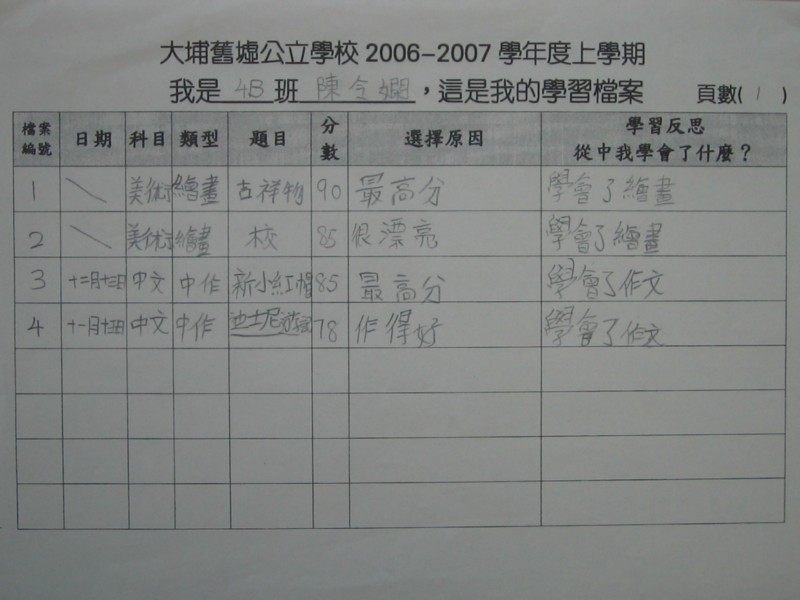 大埔舊墟公立學校 2006-2007 學年度上學期
我是 4B 班 陳令嫻 ，這是我的學習檔案 頁數( 1 )
檔案編號 日期 科目 類型 題目 分數 選擇原因 學習反思 從中我學會了什麼？
1 \ 美術 繪畫 吉祥物 90 最高分 學會了繪畫
2 \ 美術 繪畫 校 85 很漂亮 學會了繪畫
3 十二月十三日 中文 中作 新小紅帽 85 最高分 學會了作文
4 中文 中作 迪士尼遊記 78 作得好 學會了作文